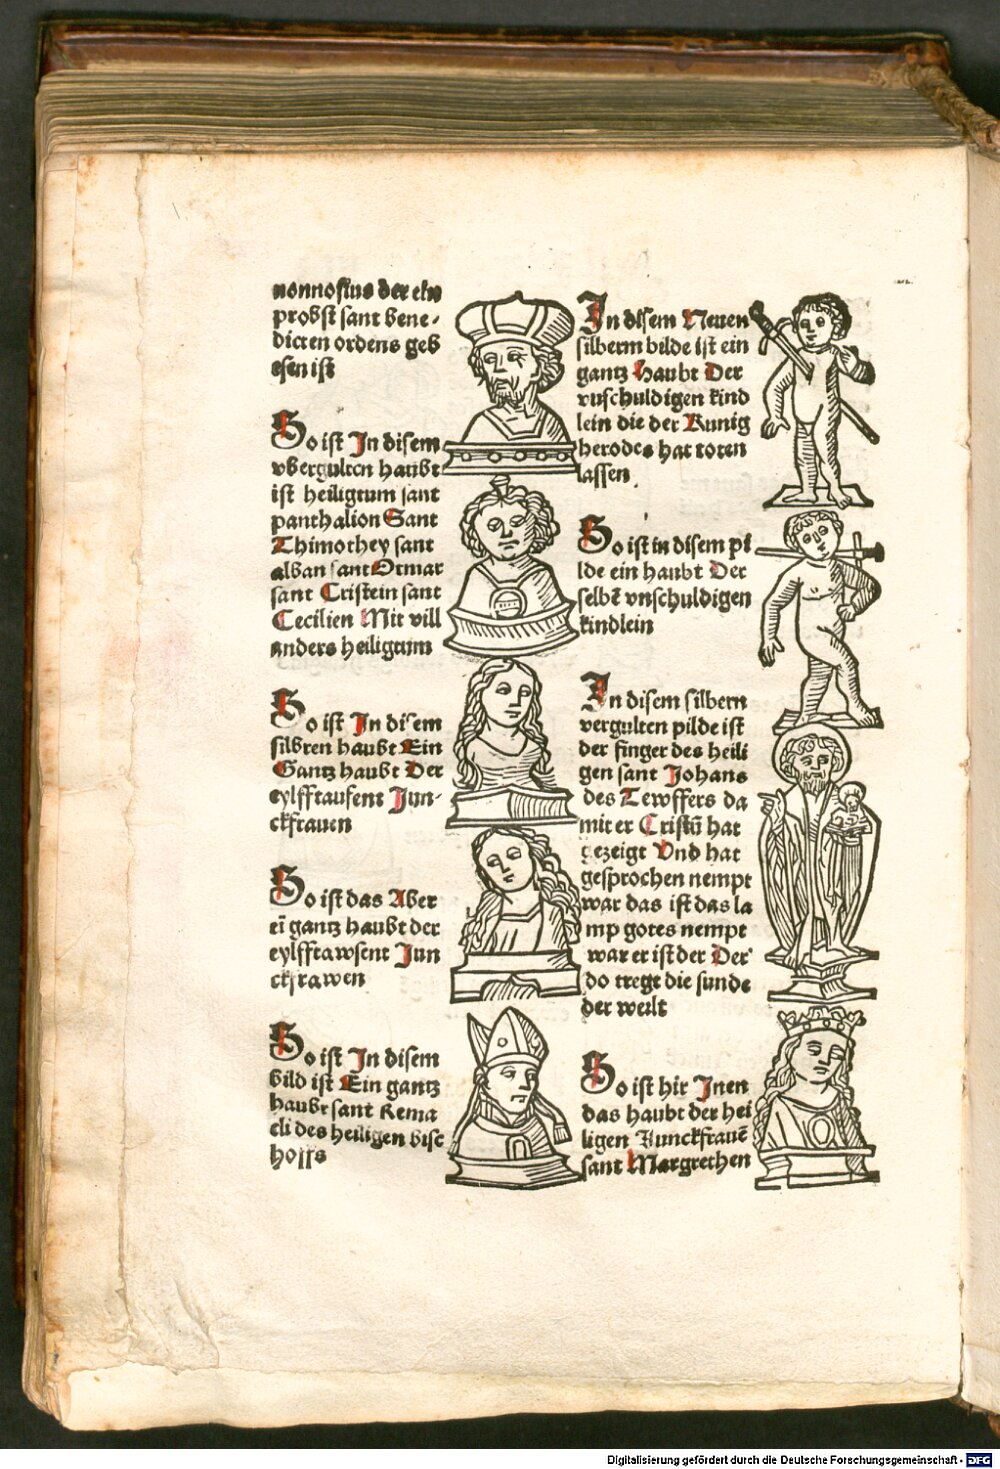 nonnosius der ein
probst sant bene-
dicten ordens geb
esen ist
So ist In disem
vbergulten haubt
ist heiligtum sant
panthalion Sant
Thimothey sant
alban sant Otmar
sant Cristein sant
Cecilien Mit vill
anders heiligtum
So ist In disem
silbren haubt Ein
Gantz haubt Der
eylfftausent Jun-
ckfrauen
So ist das Aber
eī gantz haubt der
eylfftawsent Jun
ckfrawen
So ist In disem
bild ist Ein gantz
haubt sant Rema
cli des heiligen bisc
hoffs
In disem Neuen
silberm bilde ist ein
gantz Haubt Der
vnschuldigen kind
lein die der Kunig
herodes hat toten
lassen
So ist in disem pi
lde ein haubt Der
selbē vnschuldigen
kindlein
In disem silbern
vergulten pilde ist
der finger des heili
gen sant Johans
des Tewffers da
mit er Cristū hat
gezeigt Vnd hat
gesprochen nempt
war das ist das la
mp gotes nempt
war er ist der Der
do tregt die sunde
der werlt
So ist hir Inen
das haubt der hei
ligen Junckfrauē
sant Margrethen
Digitalisierung gefördert durch die Deutsche Forschungsgemeinschaft - DFG